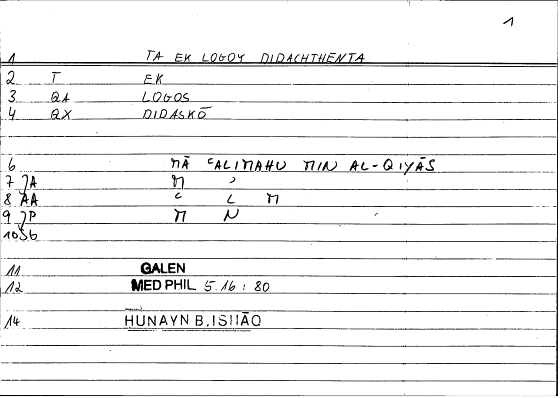 1
1 TA EK LOGOY DIDACHTHENTA
2 T EK
3 QA LOGOS
4 QX DIDASKŌ
6 MĀ ʿALIMAHU MIN AL-QIYĀS
7 JA M ʾ
8 AA ʿ L M
9 JP M N
10 SB
11 GALEN
12 MED PHIL 5.16 : 80
14 HUNAYN B. ISHĀQ